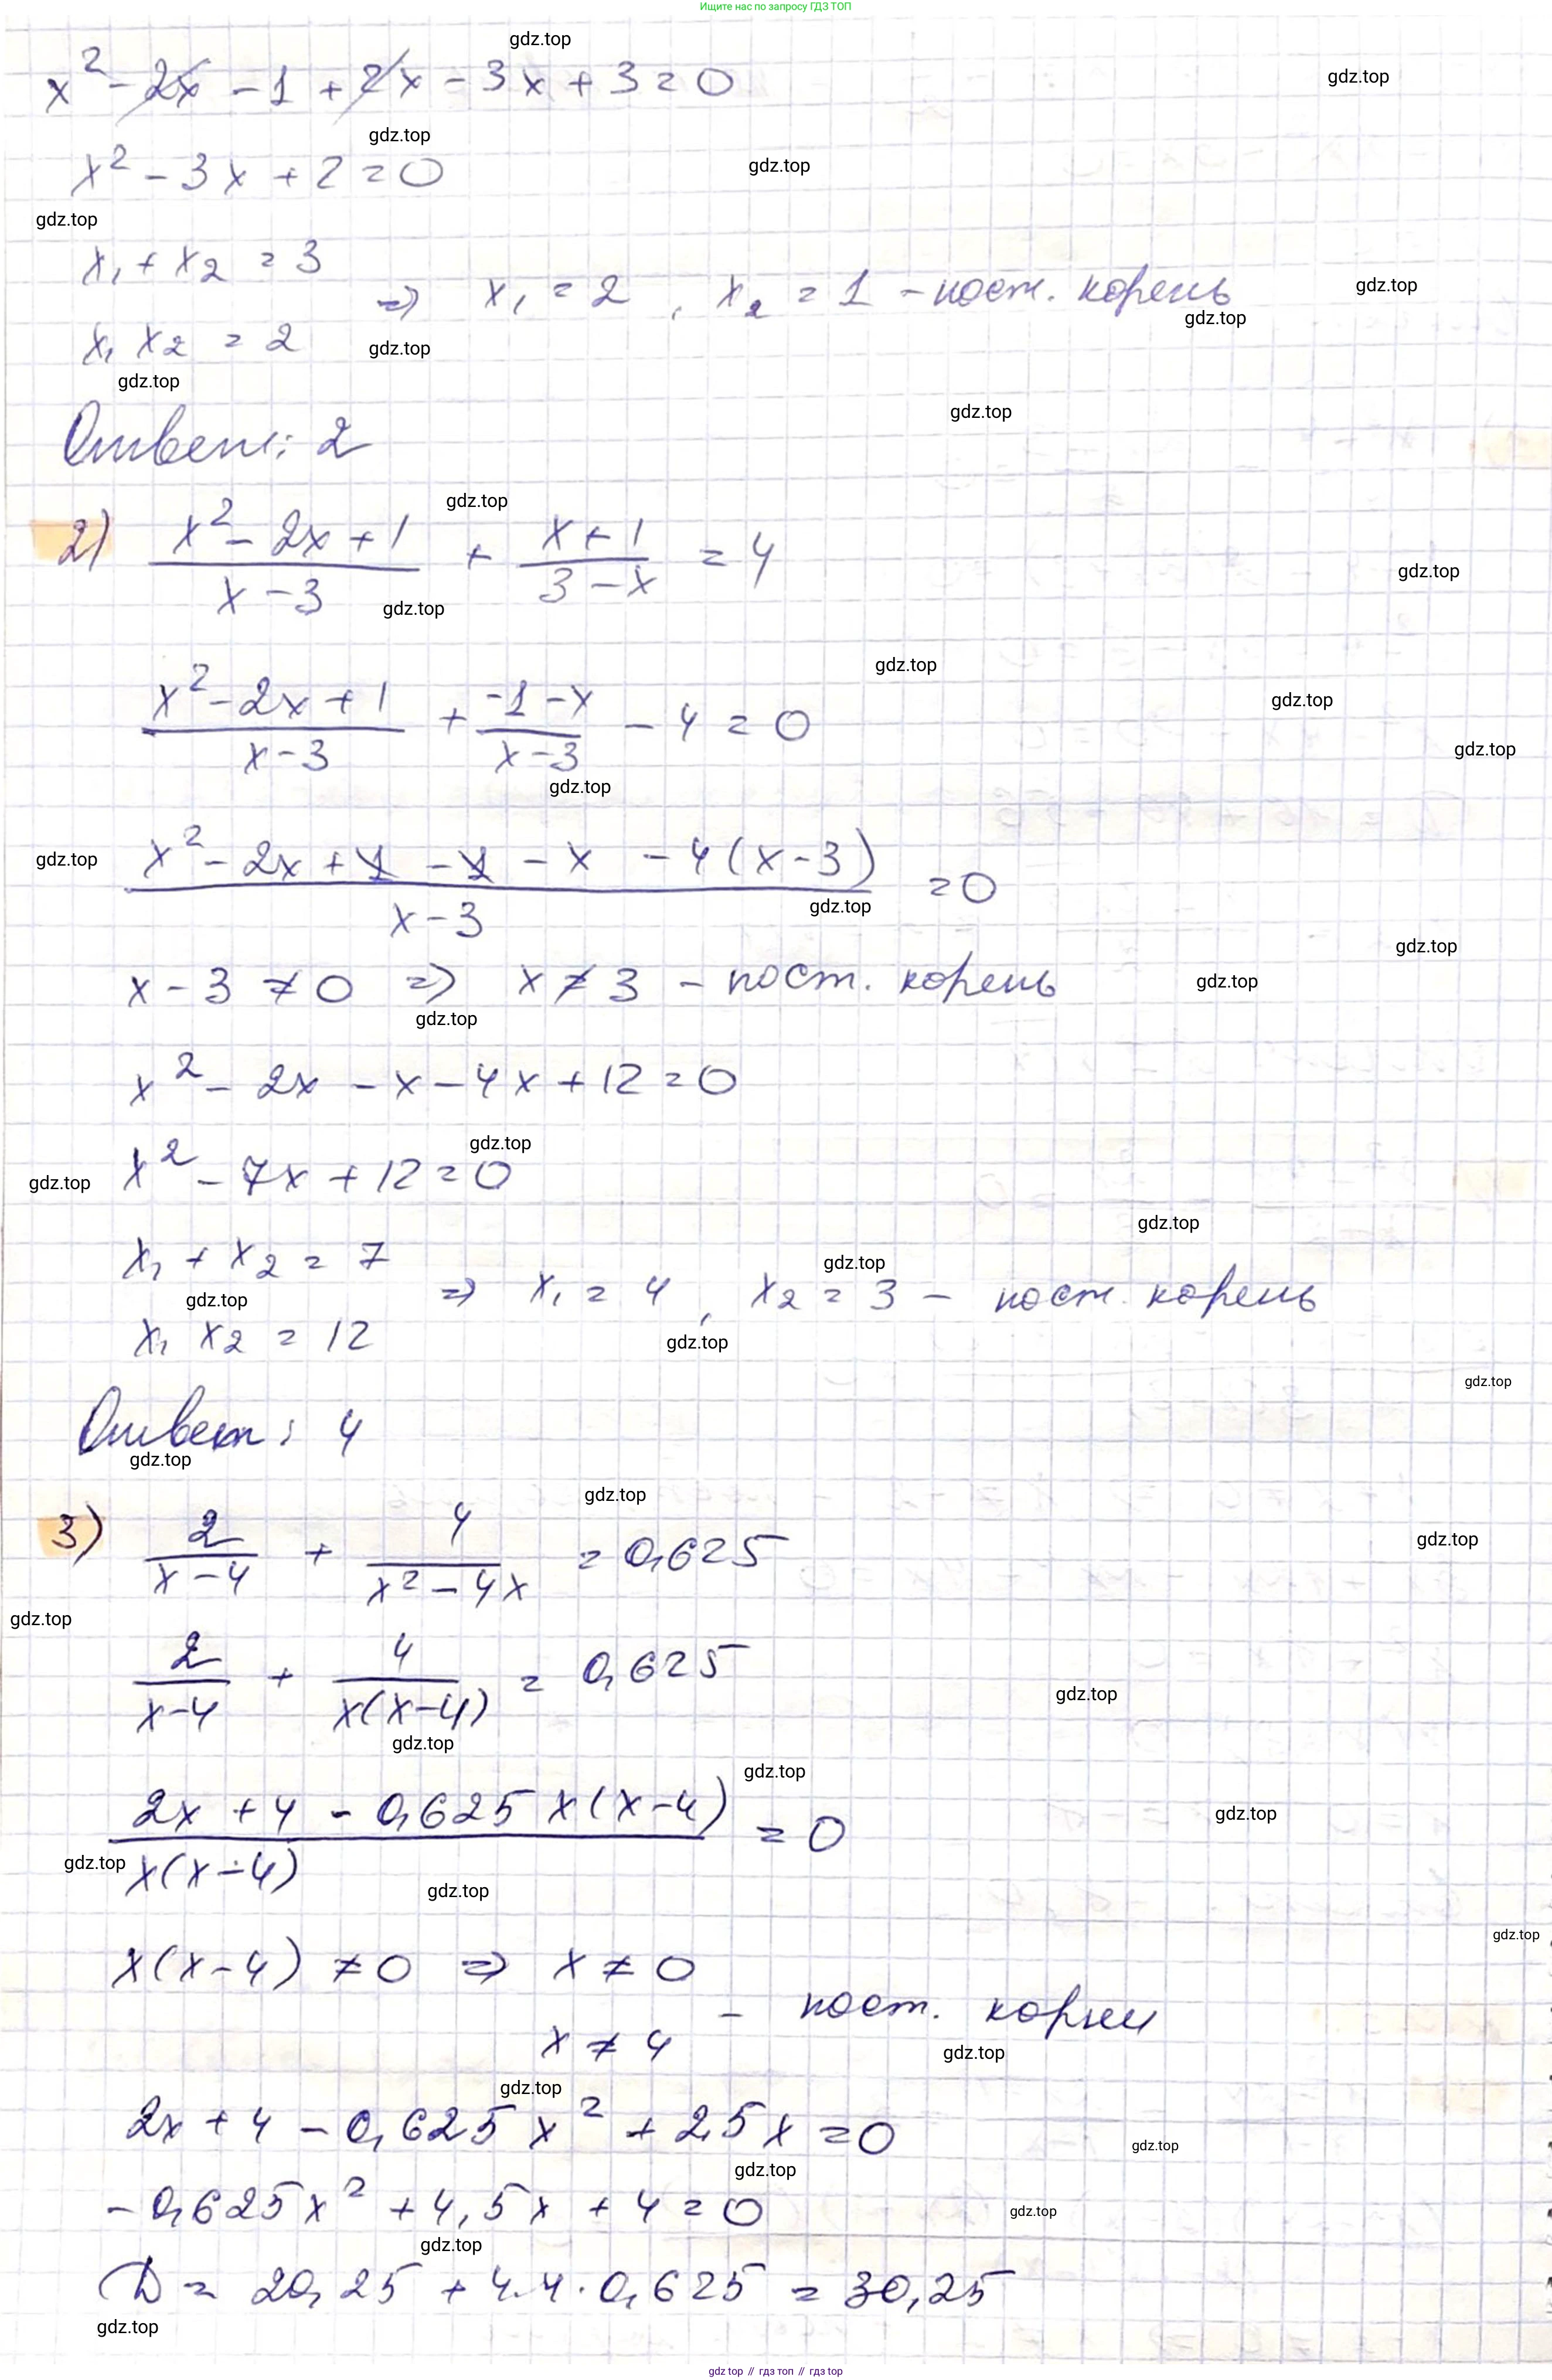 Ищите нас по запросу ГДЗ ТОП
gdz.top
x² - 2x - 1 + 2x - 3x + 3 = 0
gdz.top
gdz.top
x² - 3x + 2 = 0
gdz.top
gdz.top
x₁ + x₂ = 3
x₁ x₂ = 2
=> x₁ = 2, x₂ = 1 - пост. корень
gdz.top
gdz.top
gdz.top
gdz.top
gdz.top
Ответ: 2
gdz.top
2) (x² - 2x + 1)/(x - 3) + (x + 1)/(3 - x) = 4
gdz.top
gdz.top
gdz.top
(x² - 2x + 1)/(x - 3) + (-1 - x)/(x - 3) - 4 = 0
gdz.top
gdz.top
gdz.top
gdz.top
(x² - 2x + 1 - 1 - x - 4(x - 3))/(x - 3) = 0
gdz.top
gdz.top
x - 3 ≠ 0 => x ≠ 3 - пост. корень
gdz.top
gdz.top
x² - 2x - x - 4x + 12 = 0
gdz.top
gdz.top
x² - 7x + 12 = 0
gdz.top
x₁ + x₂ = 7
x₁ x₂ = 12
=> x₁ = 4, x₂ = 3 - пост. корень
gdz.top
gdz.top
gdz.top
gdz.top
Ответ: 4
gdz.top
gdz.top
3) 2/(x - 4) + 4/(x² - 4x) = 0,625
gdz.top
gdz.top
2/(x - 4) + 4/(x(x - 4)) = 0,625
gdz.top
gdz.top
gdz.top
(2x + 4 - 0,625 x(x - 4))/(x(x - 4)) = 0
gdz.top
gdz.top
gdz.top
gdz.top
x(x - 4) ≠ 0 => x ≠ 0
x ≠ 4
- пост. корни
gdz.top
gdz.top
2x + 4 - 0,625x² + 2,5x = 0
gdz.top
gdz.top
-0,625x² + 4,5x + 4 = 0
gdz.top
gdz.top
D = 20,25 + 4·4·0,625 = 30,25
gdz.top
gdz.top // гдз топ // гдз top